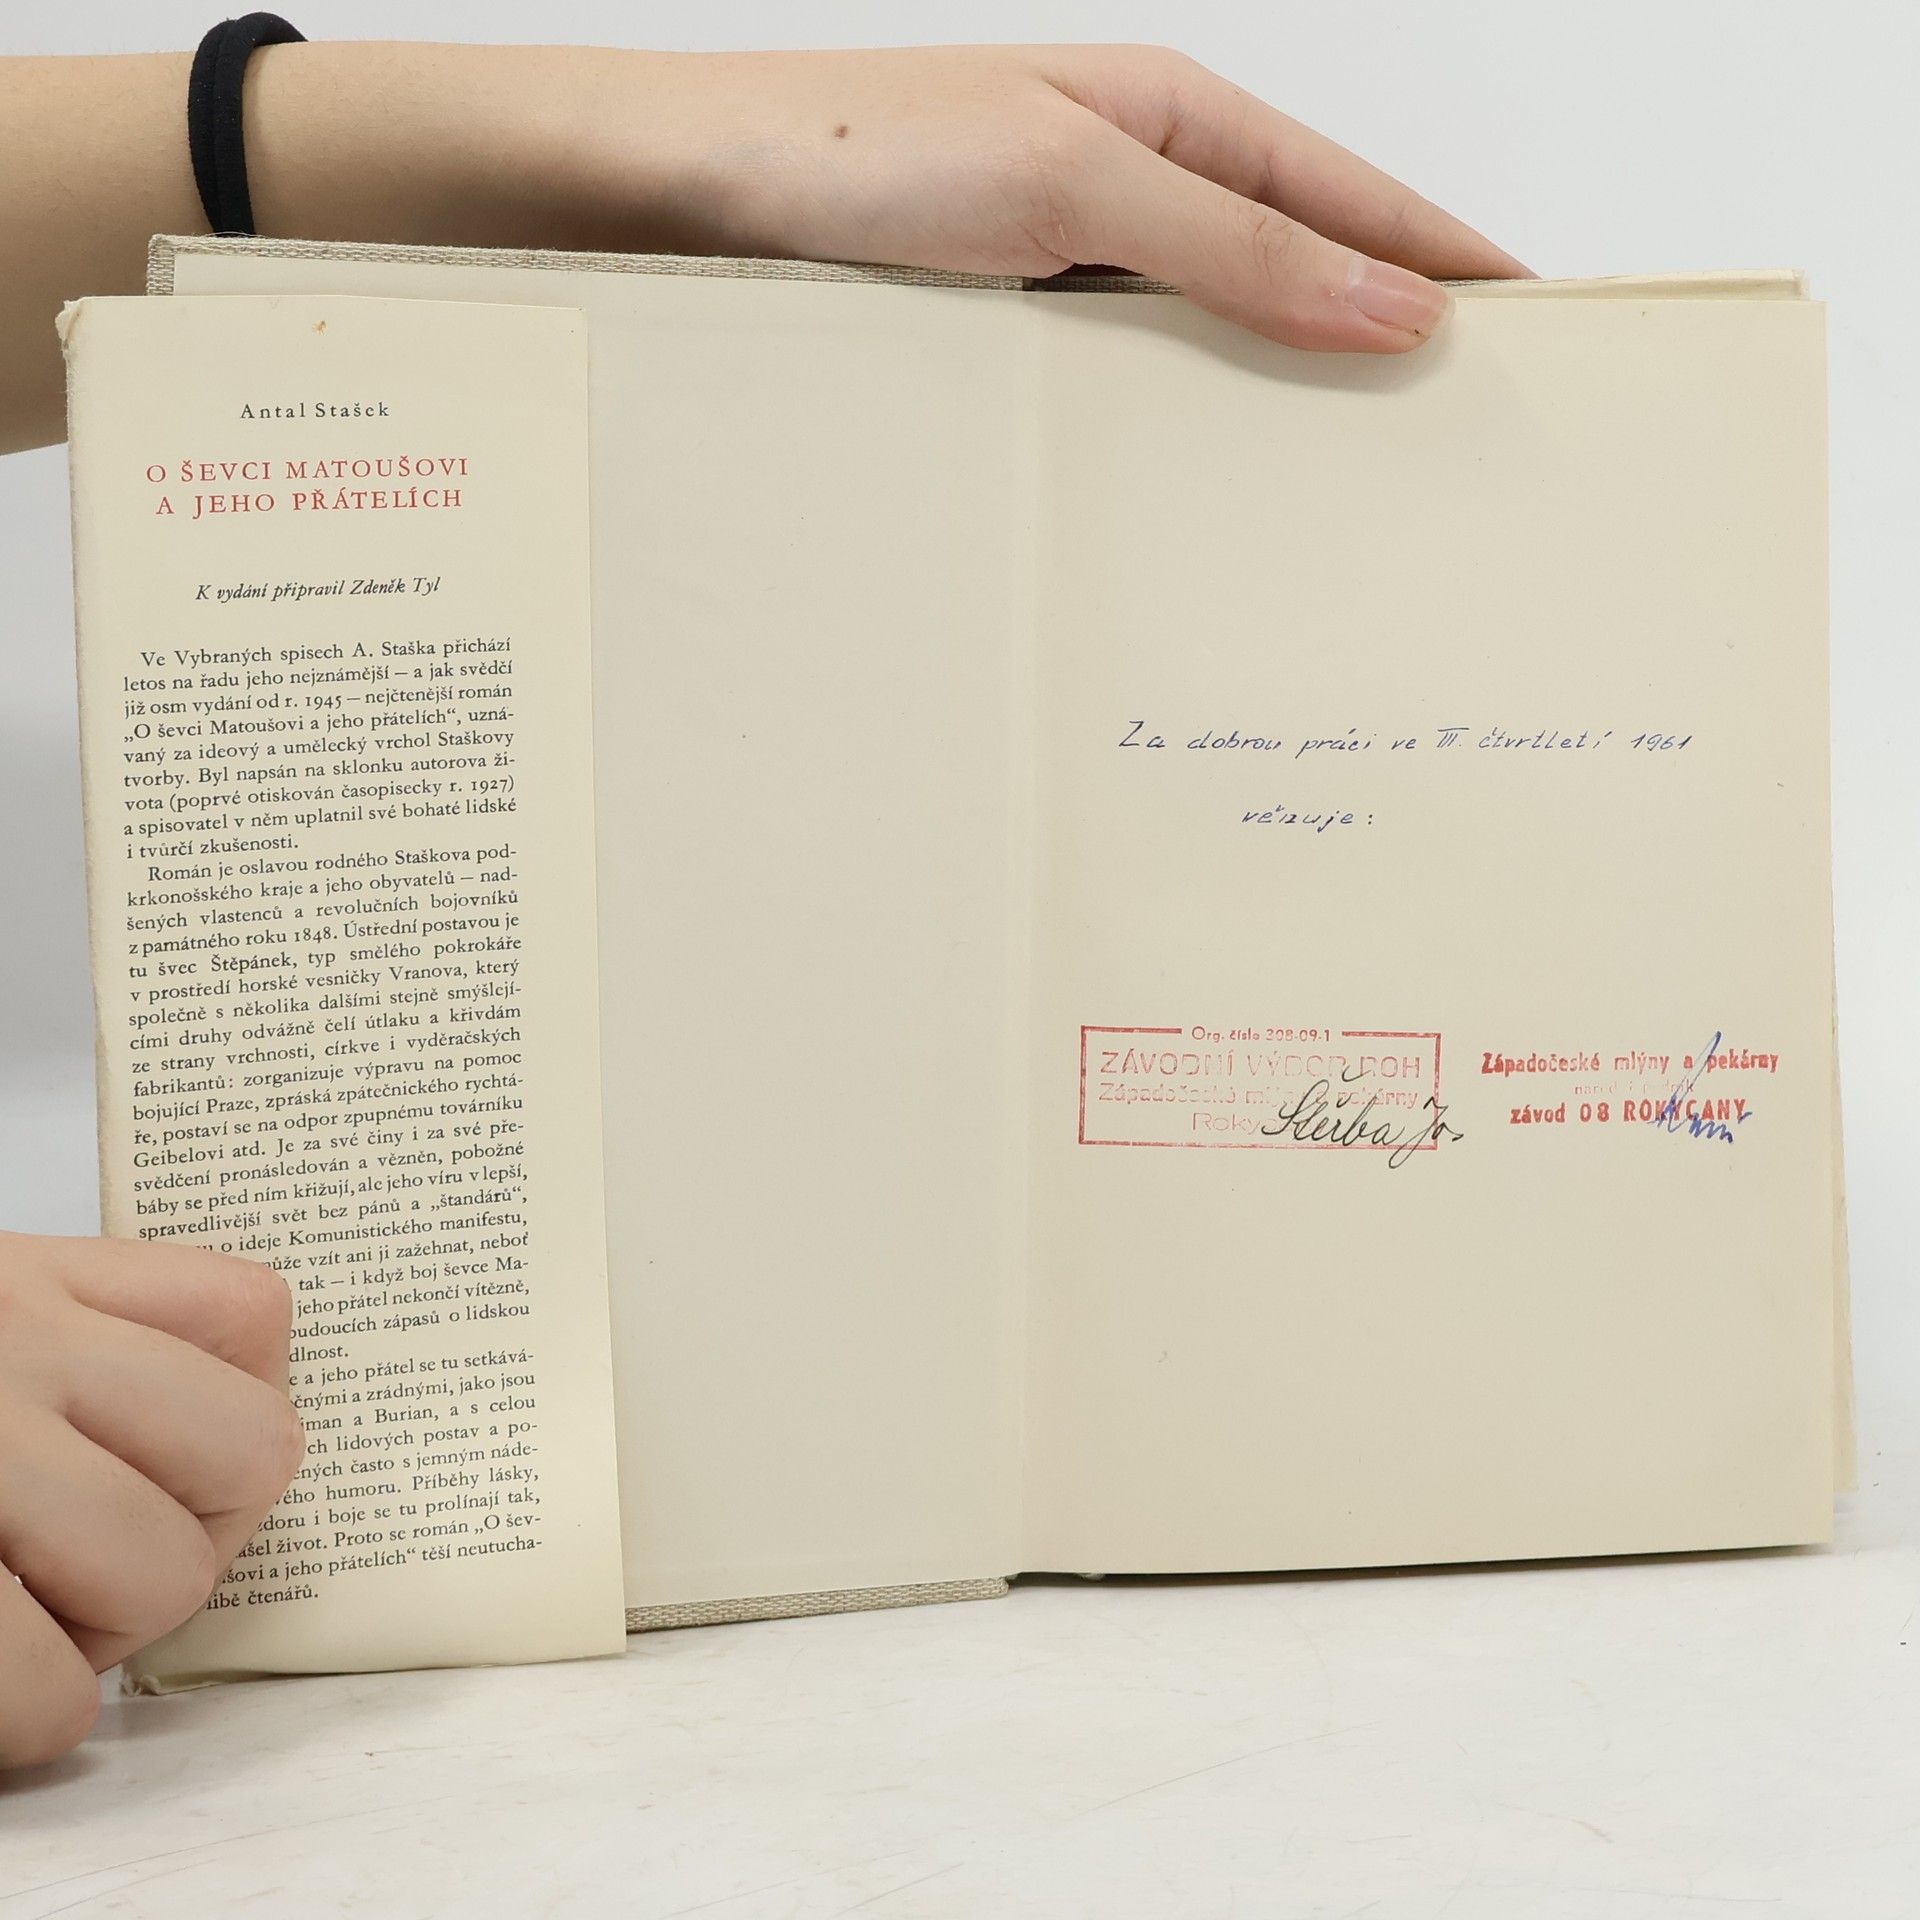 Antal Stašek
O ŠEVCI MATOUŠOVI
A JEHO PŘÁTELÍCH
K vydání připravil Zdeněk Tyl
Ve Vybraných spisech A. Staška přichází
letos na řadu jeho nejznámější – a jak svědčí
již osm vydání od r. 1945 – nejčtenější román
„O ševci Matoušovi a jeho přátelích“, uzná-
vaný za ideový a umělecký vrchol Staškovy
tvorby. Byl napsán na sklonku autorova ži-
vota (poprvé otiskován časopisecky r. 1927)
a spisovatel v něm uplatnil své bohaté lidské
i tvůrčí zkušenosti.
Román je oslavou rodného Staškova pod-
krkonošského kraje a jeho obyvatelů – nad-
šených vlastenců a revolučních bojovníků
z památného roku 1848. Ústřední postavou je
tu švec Štěpánek, typ smělého pokrokáře
v prostředí horské vesničky Vranova, který
společně s několika dalšími stejně smýšlejí-
cími druhy odvážně čelí útlaku a křivdám
ze strany vrchnosti, církve i vyděračských
fabrikantů: zorganizuje výpravu na pomoc
bojující Praze, zpráská zpátečnického rychtá-
ře, postaví se na odpor zpupnému továrníku
Geibelovi atd. Je za své činy i za své pře-
svědčení pronásledován a vězněn, pobožné
báby se před ním křižují, ale jeho víru v lepší,
spravedlivější svět bez pánů a „štandárů“,
o ideje Komunistického manifestu,
může vzít ani ji zažehnat, neboť
tak – i když boj ševce Ma-
jeho přátel nekončí vítězně,
budoucích zápasů o lidskou
dlnost.
e a jeho přátel se tu setkává-
čnými a zrádnými, jako jsou
iman a Burian, a s celou
ch lidových postav a po-
ených často s jemným náde-
vého humoru. Příběhy lásky,
zdoru i boje se tu prolínají tak,
ášel život. Proto se román „O šev-
šovi a jeho přátelích“ těší neutucha-
libě čtenářů.
Za dobrou práci ve III. čtvrtletí 1961
věnuje:
Org. číslo 308-09-1
ZÁVODNÍ VÝBOR ROH
Západočeské mlýny a pekárny
Roky
Štěrba Jos
Západočeské mlýny a pekárny
národní podnik
závod 08 ROKYCANY